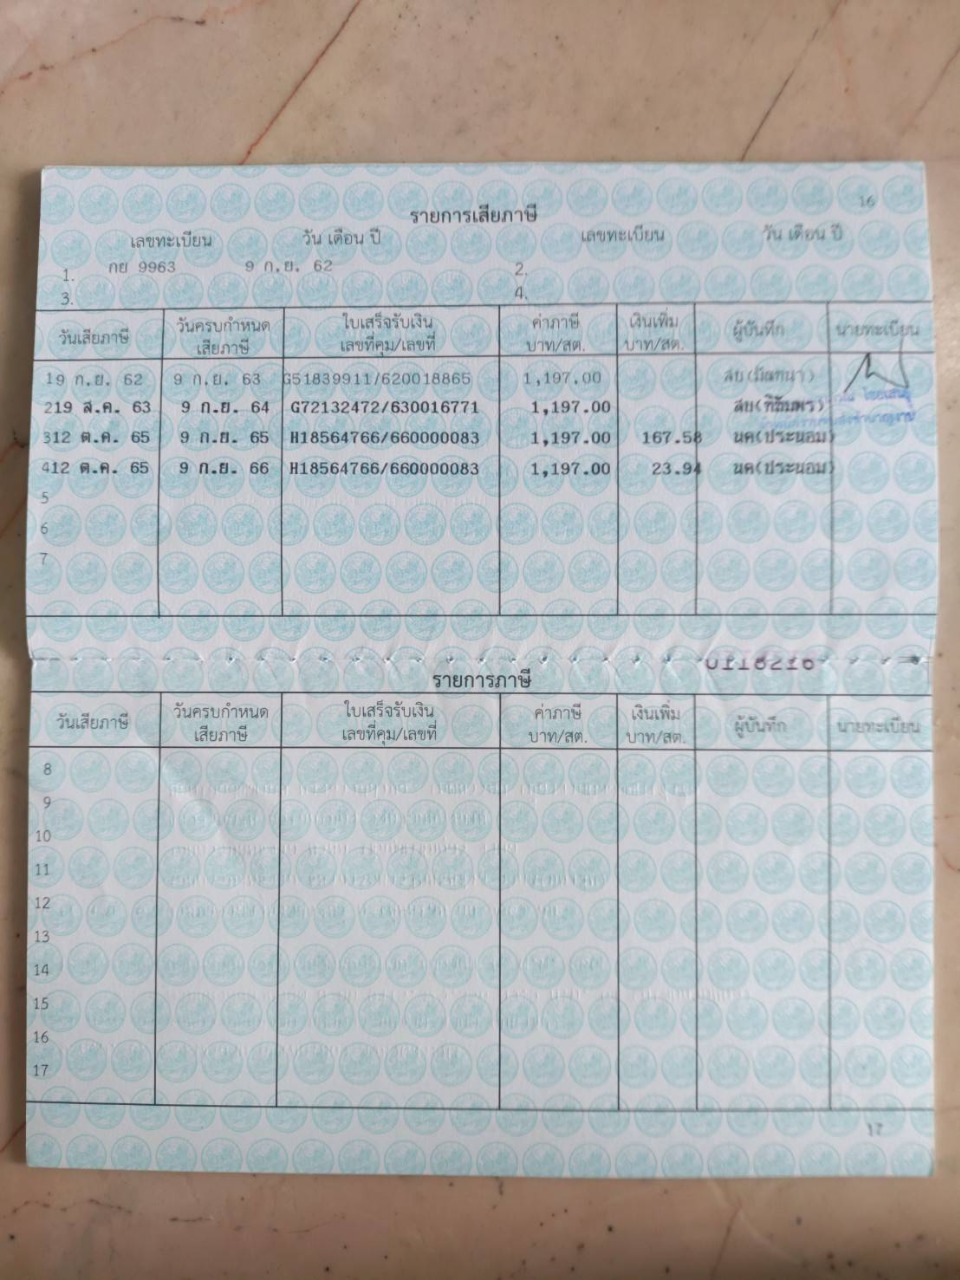 16
รายการเสียภาษี
เลขทะเบียน วัน เดือน ปี เลขทะเบียน วัน เดือน ปี
1. กย 9963 9 ก.ย. 62 2.
3. 4.
วันเสียภาษี วันครบกำหนดเสียภาษี ใบเสร็จรับเงิน เลขที่คุม/เลขที่ ค่าภาษี บาท/สต. เงินเพิ่ม บาท/สต. ผู้บันทึก นายทะเบียน
19 ก.ย. 62 9 ก.ย. 63 G51839911/620018865 1,197.00
219 ส.ค. 63 9 ก.ย. 64 G72132472/630016771 1,197.00
312 ต.ค. 65 9 ก.ย. 65 H18564766/660000083 1,197.00 167.58 นค(ประนอม)
412 ต.ค. 65 9 ก.ย. 66 H18564766/660000083 1,197.00 23.94 นค(ประนอม)
5
6
7
0118216
รายการภาษี
วันเสียภาษี วันครบกำหนดเสียภาษี ใบเสร็จรับเงิน เลขที่คุม/เลขที่ ค่าภาษี บาท/สต. เงินเพิ่ม บาท/สต. ผู้บันทึก นายทะเบียน
8
9
10
11
12
13
14
15
16
17
17